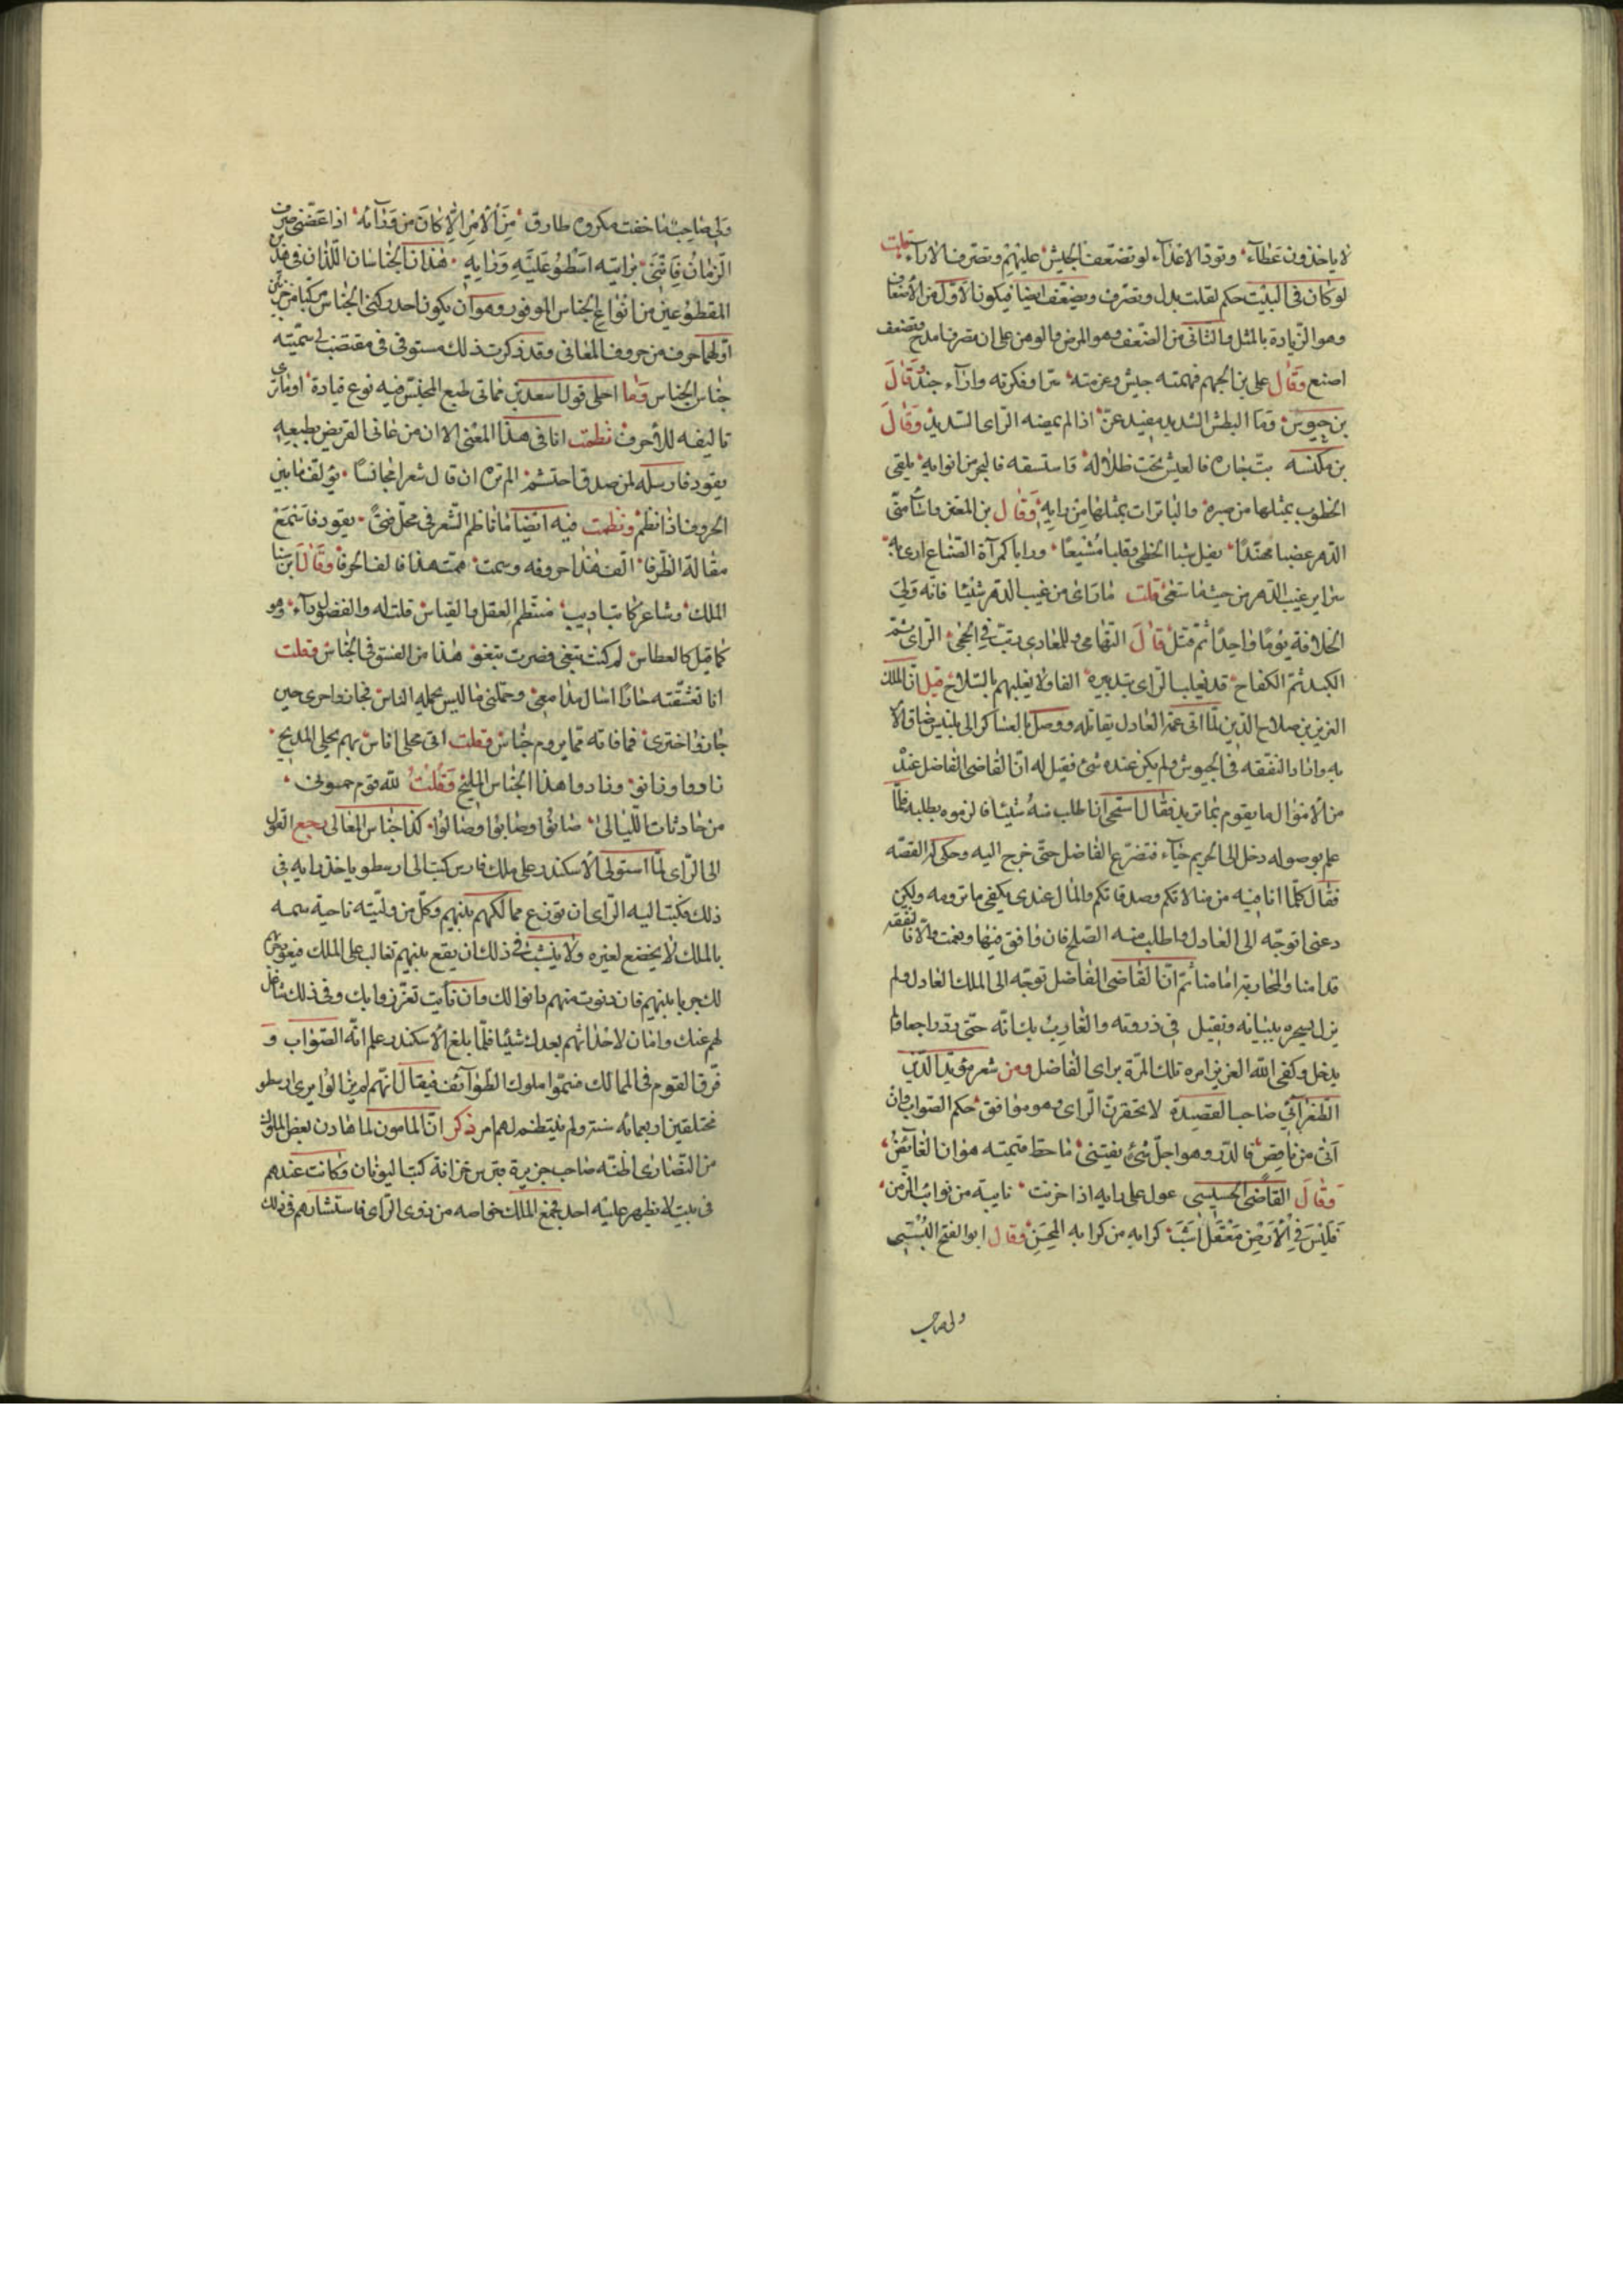 لا ياخذون عطاء وتود الاعداء لو تضعف الجيش عليهم وتصرف الاراء قلت
لو كان في البيت حكم لقلت بدل وتصرف ويضعف ايضا فيكون الاول من الاضعاف
وهو الزيادة بالمثل والثاني من الضعف وهو المرض والوهن على ان تصرف امدح وتضعف
اصنع وقال علي بن الجهم فهمته جيش وعزمته سرا وفكرته واراء جند وقال
بن حيوس وما البطش الشديد مفيد عز اذا لم يمضه الراي السديد وقال
بن مكنسه بت جاره فالعيش تحت ظلاله واستسقه فالبحر من انوايه يلقى
الخطوب بمثلها من صبره والباترات بمثلها من رايه وقال بن المعتز واشامني
الدهر عضبا مهندا يفل شبا الخطى وقلبا مشيعا ورايا كمرآة الصناع ارى به
سراير غيب الدهر من حيث ما سعى قلت ما راى من غيب الدهر شيئا فانه ولي
الخلافة يوما واحدا ثم قتل قال التهامي وللعادي بت في الحجى الراي ثم
الكيد ثم الكفاح قد يغلب الراي بتدبيره الفا ولا يغلبهم بالسلاح قيل ان الملك
العزيز بن صلاح الدين لما اتى عمه العادل يقاتله ووصل بالعساكر الى بلبيس ضاق الا
به واناد النفقه في الجيوش ولم يكن عنده شيء فقيل له ان القاضي الفاضل عنده
من الاموال ما يقوم بما تريد فقال استحي انا اطلب منه شيئا فالزموه بطلبه فلما
علم بوصوله دخل الى الحريم حياء فتضرع الفاضل حتى خرج اليه وحكى له القصه
فقال كلما انا فيه من صلاتكم وصدقاتكم والمال عندي يكفي ما ترومه ولكن
دعني اتوجه الى العادل واطلب منه الصلح فان وافق فبها ونعمت والا فالنفقه
قدامنا والمحاربة امامنا ثم ان القاضي الفاضل توجه الى الملك العادل ولم
يزل يسحره ببيانه ويفتل في ذروته والغارب بلسانه حتى رد راجعا ولم
يدخل وكفى الله العزيز امره تلك المرة براى الفاضل ومن شعر مؤيد الدين
الطغرائي صاحب القصيدة لا تحقرن الراي وهو موافق حكم الصواب وان
اتى من ناقص فالدر وهو اجل شيء يقتنى ما حط قيمته هوان الغايص
وقال القاضي الجليسي عول على رايه اذا حزبت نايبة من نوايب الزمن
فليس في الارض معقل اشب كرايه من كرايه المحن وقال ابو الفتح البستي
ولي صاحب
ولي صاحب ما خفت مكروه طارق من الامر الا كان من ورائه اذا عضني صرف
الزمان فانني برايته اسطو عليه ورايه هذان الجناسان اللذان في هذين
المقطوعين من انواع الجناس الموفور وهو ان يكون احد ركني الجناس مركبا من جزئين
اولهما حرف من حروف المعاني وقد ذكرت ذلك مستوفى في مقتضب لي سميته
جناس الجناس وما احلى قول اسعد بن مماتي طبع المجنس فيه نوع قيادة اوما ترى
تاليفه للاحرف نظمت انا في هذا المعنى الا ان من عانى القريض بطبعه
يقود فارسله لمن صد واحتشم الم تره ان قال شعرا مجانسا يؤلف ما بين
الحروف اذا نظم ونظمت فيه ايضا ما ناظم الشعر في محل فتى يقود فاسمع
مقالة الظرفا الف هذا حروفه وسمت همة هذا فالف الحرفا وقال ابن سنا
الملك وشاعر كاتب اديب منتظم العقل والقياس قلت له والفضول داء وهو
كما قيل كالعطاس لم كنت تبغى فصرت تبغو هذا من الفسق في الجناس فقلت
انا تعشقته حاز اشالهذا معنى وحملني ما ليس يحمله الناس فجاز واجرى حين
جاز واجترى فما فاته مما يروم جناس فقلت اتى محلى اناس بهم يحلى المديح
ناووا وزانو وزادوا هذا الجناس المليح وقلت لله قوم حموني
من حادثات الليالي صانوا وصابوا وصالوا كذا جناس المعالي رجع القول
الى الراي لما استولى الاسكندر على ملك فارس كتب الى ارسطو ياخذ رايه في
ذلك فكتب اليه الراي ان توزع ممالكهم بينهم وكل من وليته ناحية سمه
بالملك لا يخضع لغيره ولا ينشب في ذلك ان يقع بينهم تغالب على الملك فيعود حربهم
لك حربا بينهم فان دنوت منهم دانوا لك وان نايت تعززوا بك وفي ذلك شاغل
لهم عنك وامان لاحداثهم بعدك شيئا فلما بلغ الاسكندر علم انه الصواب و
فرق القوم في الممالك فسموا ملوك الطوائف فيقال انهم لم يزالوا براي ارسطو
مختلفين اربعمائه سنة ولم ينتظم لهم امر ذكر ان المامون لما هادن بعض الملوك
من النصارى اظنه صاحب جزيرة قبرس خزانة كتب اليونان وكانت عندهم
في بيت لا يظهر عليه احد فجمع الملك خواصه من ذوي الراي فاستشارهم في ذلك